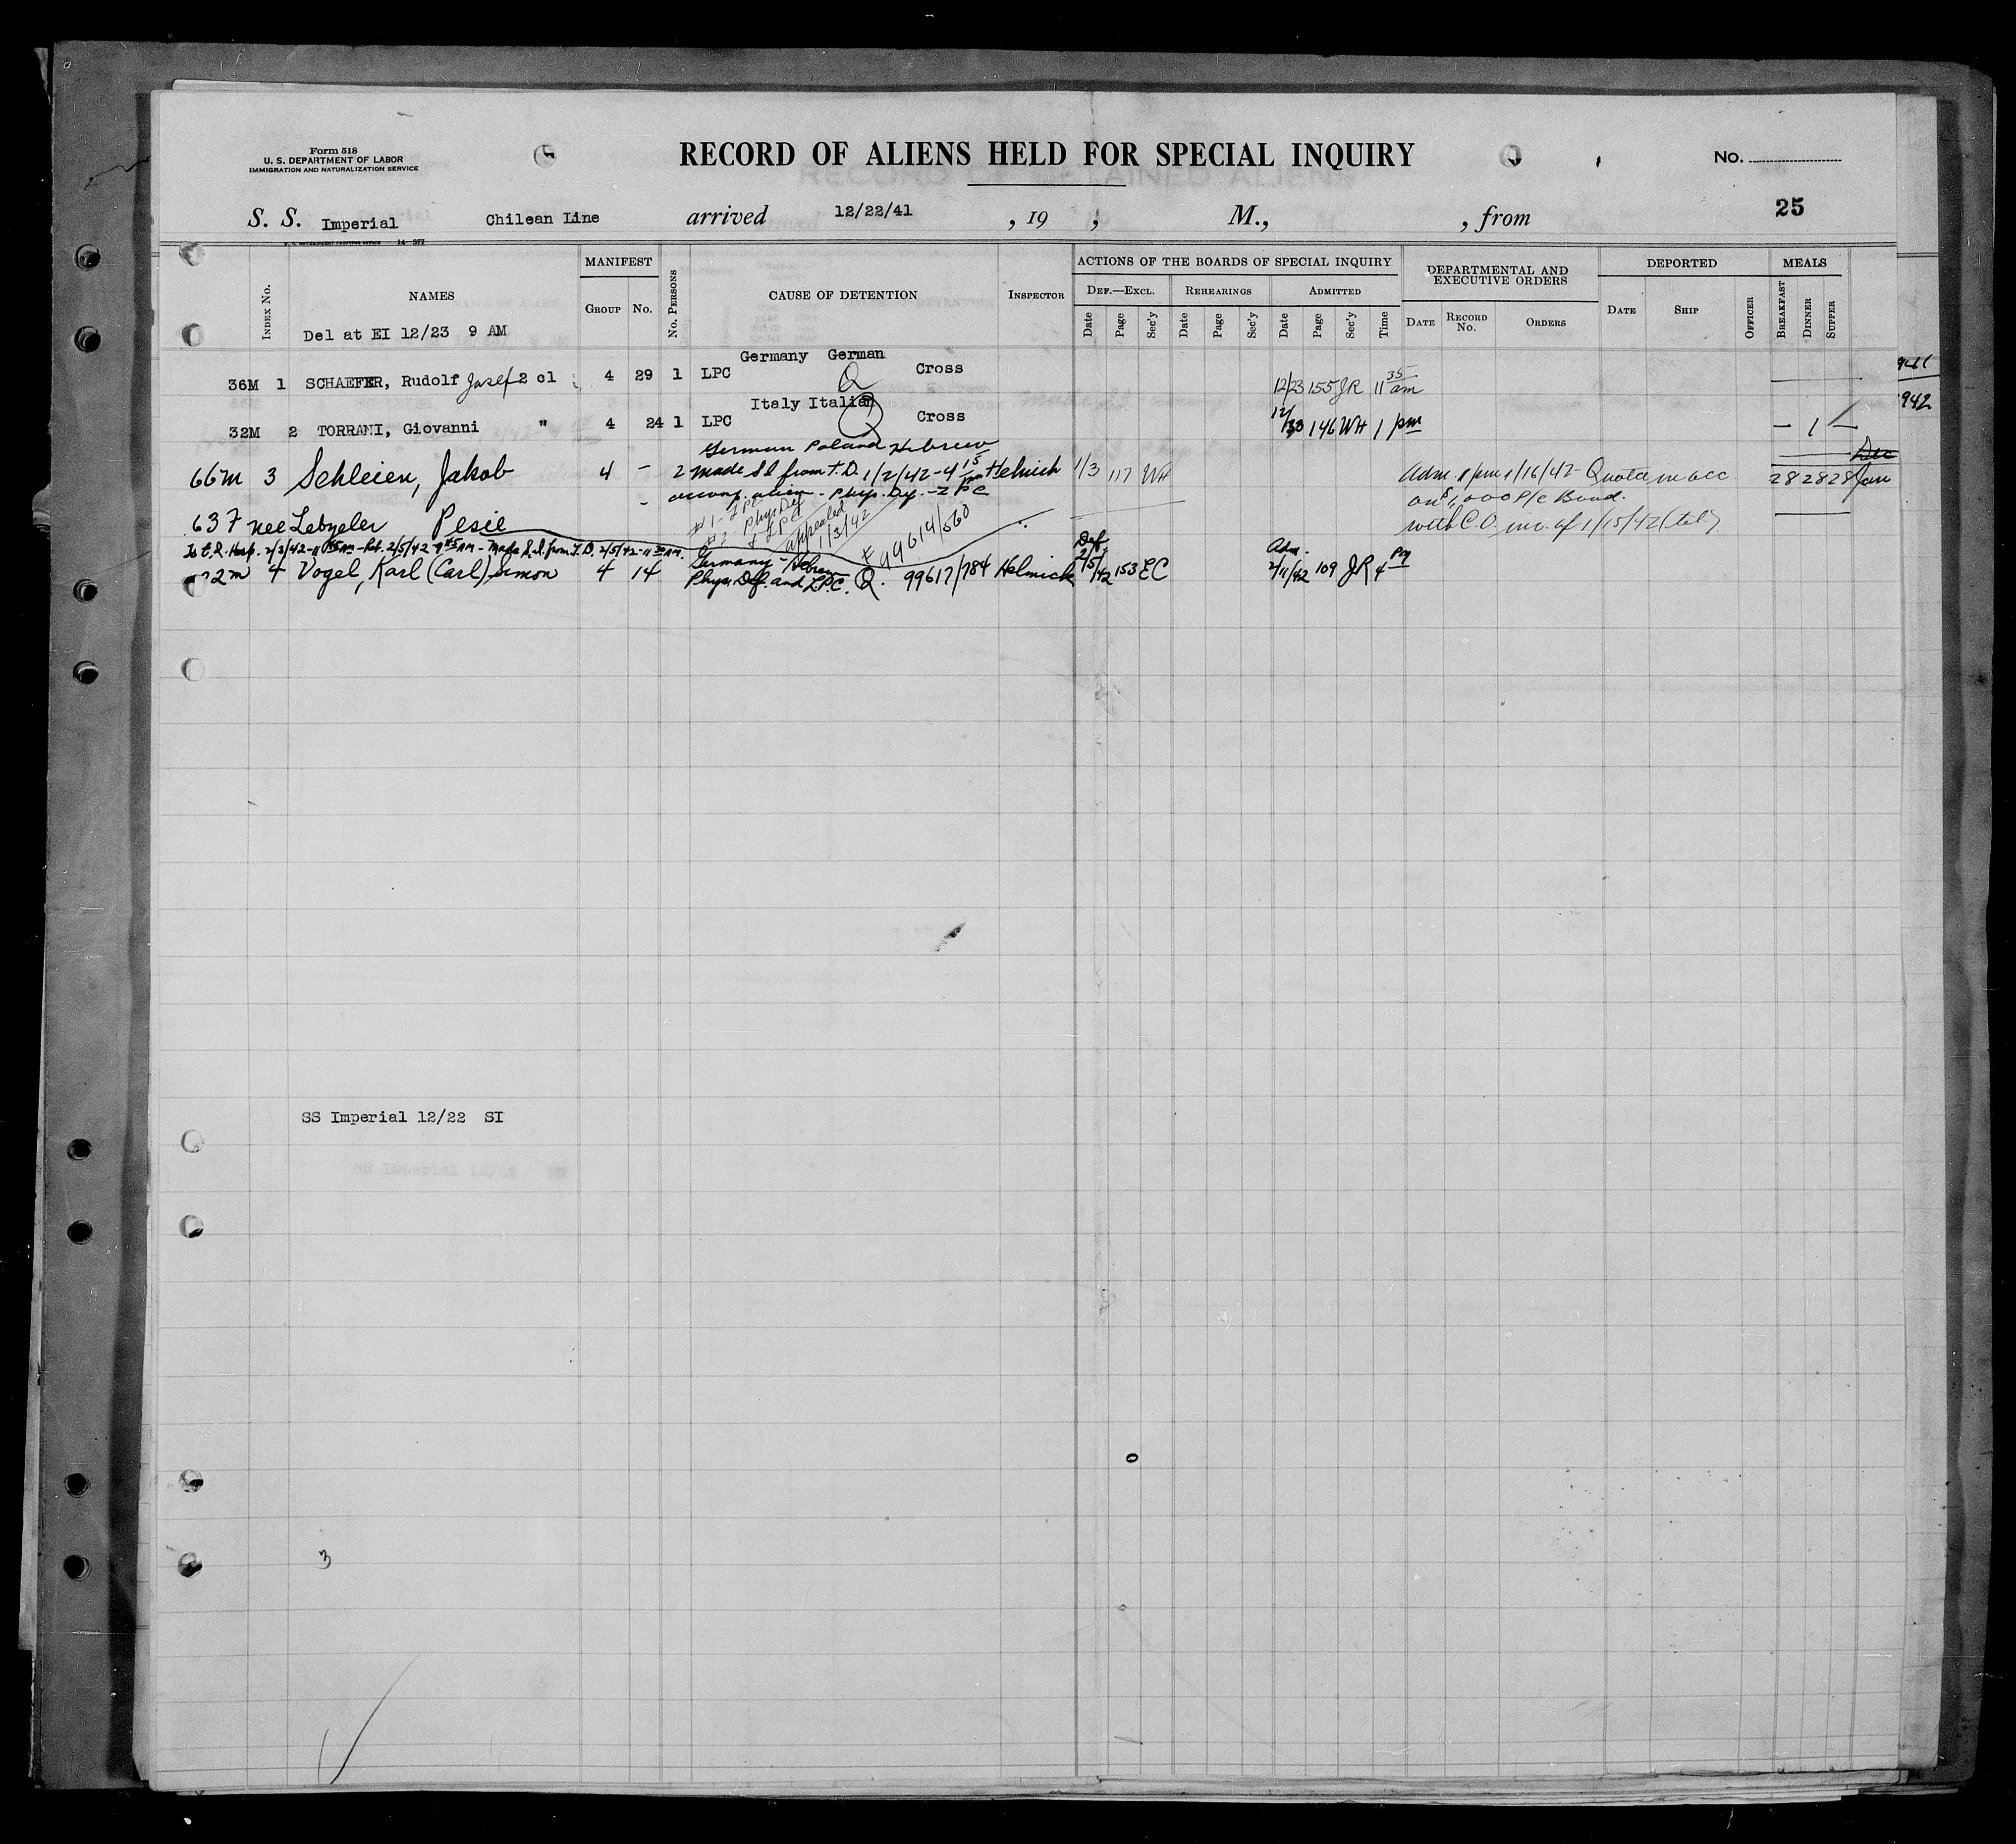 Form 518
U. S. DEPARTMENT OF LABOR
IMMIGRATION AND NATURALIZATION SERVICE
RECORD OF ALIENS HELD FOR SPECIAL INQUIRY
No.
S. S. Imperial Chilean Line arrived 12/22/41 , 19 , M., , from 25
MANIFEST
ACTIONS OF THE BOARDS OF SPECIAL INQUIRY
DEPARTMENTAL AND EXECUTIVE ORDERS
DEPORTED
MEALS
INDEX No. NAMES GROUP No. No. PERSONS CAUSE OF DETENTION INSPECTOR DEF.—EXCL. REHEARINGS ADMITTED
Date Page Sec'y Date Page Sec'y Date Page Sec'y Time DATE RECORD No. ORDERS DATE SHIP OFFICER BREAKFAST DINNER SUPPER
Del at EI 12/23 9 AM
Germany German
36M 1 SCHAEFER, Rudolf Josef 2 cl 4 29 1 LPC Q Cross 12/23 155 JR 11 35 am
Italy Italian
32M 2 TORRANI, Giovanni " 4 24 1 LPC Q Cross 12/23 146 WH 1 pm — 1 —
942
German Poland Hebrew
Dec
66m 3 Schleien, Jakob 4 — 2 made SI from T.D. 1/2/42 - 4 15 pm Helmick 1/3 117 WH Adm. 1 pm 1/16/42 - Quota in acc 28 28 28 Jan
accomp. alien - Phys. Def. - LPC on $1,000 P/C Bond.
63 F nee Lebzeler Pesie — #1 - LPC #2 - Phys Def & LPC appealed 1/3/42 # 99614/560 with C.O. inv. of 1/15/42 (tel).
To E.I. Hosp. 2/2/42 - 11 45 AM - Ret. 2/5/42 - 9 45 AM - Made S.I. from T.D. 2/5/42 - 11 30 AM.
Germany - Hebrew Def. Adm.
2 m 4 Vogel, Karl (Carl) Simon 4 14 Phys. Def. and L.P.C. Q. 99617/784 Helmick 2/5/42 153 EC 2/11/42 109 JR 4 PM
SS Imperial 12/22 SI
0
3